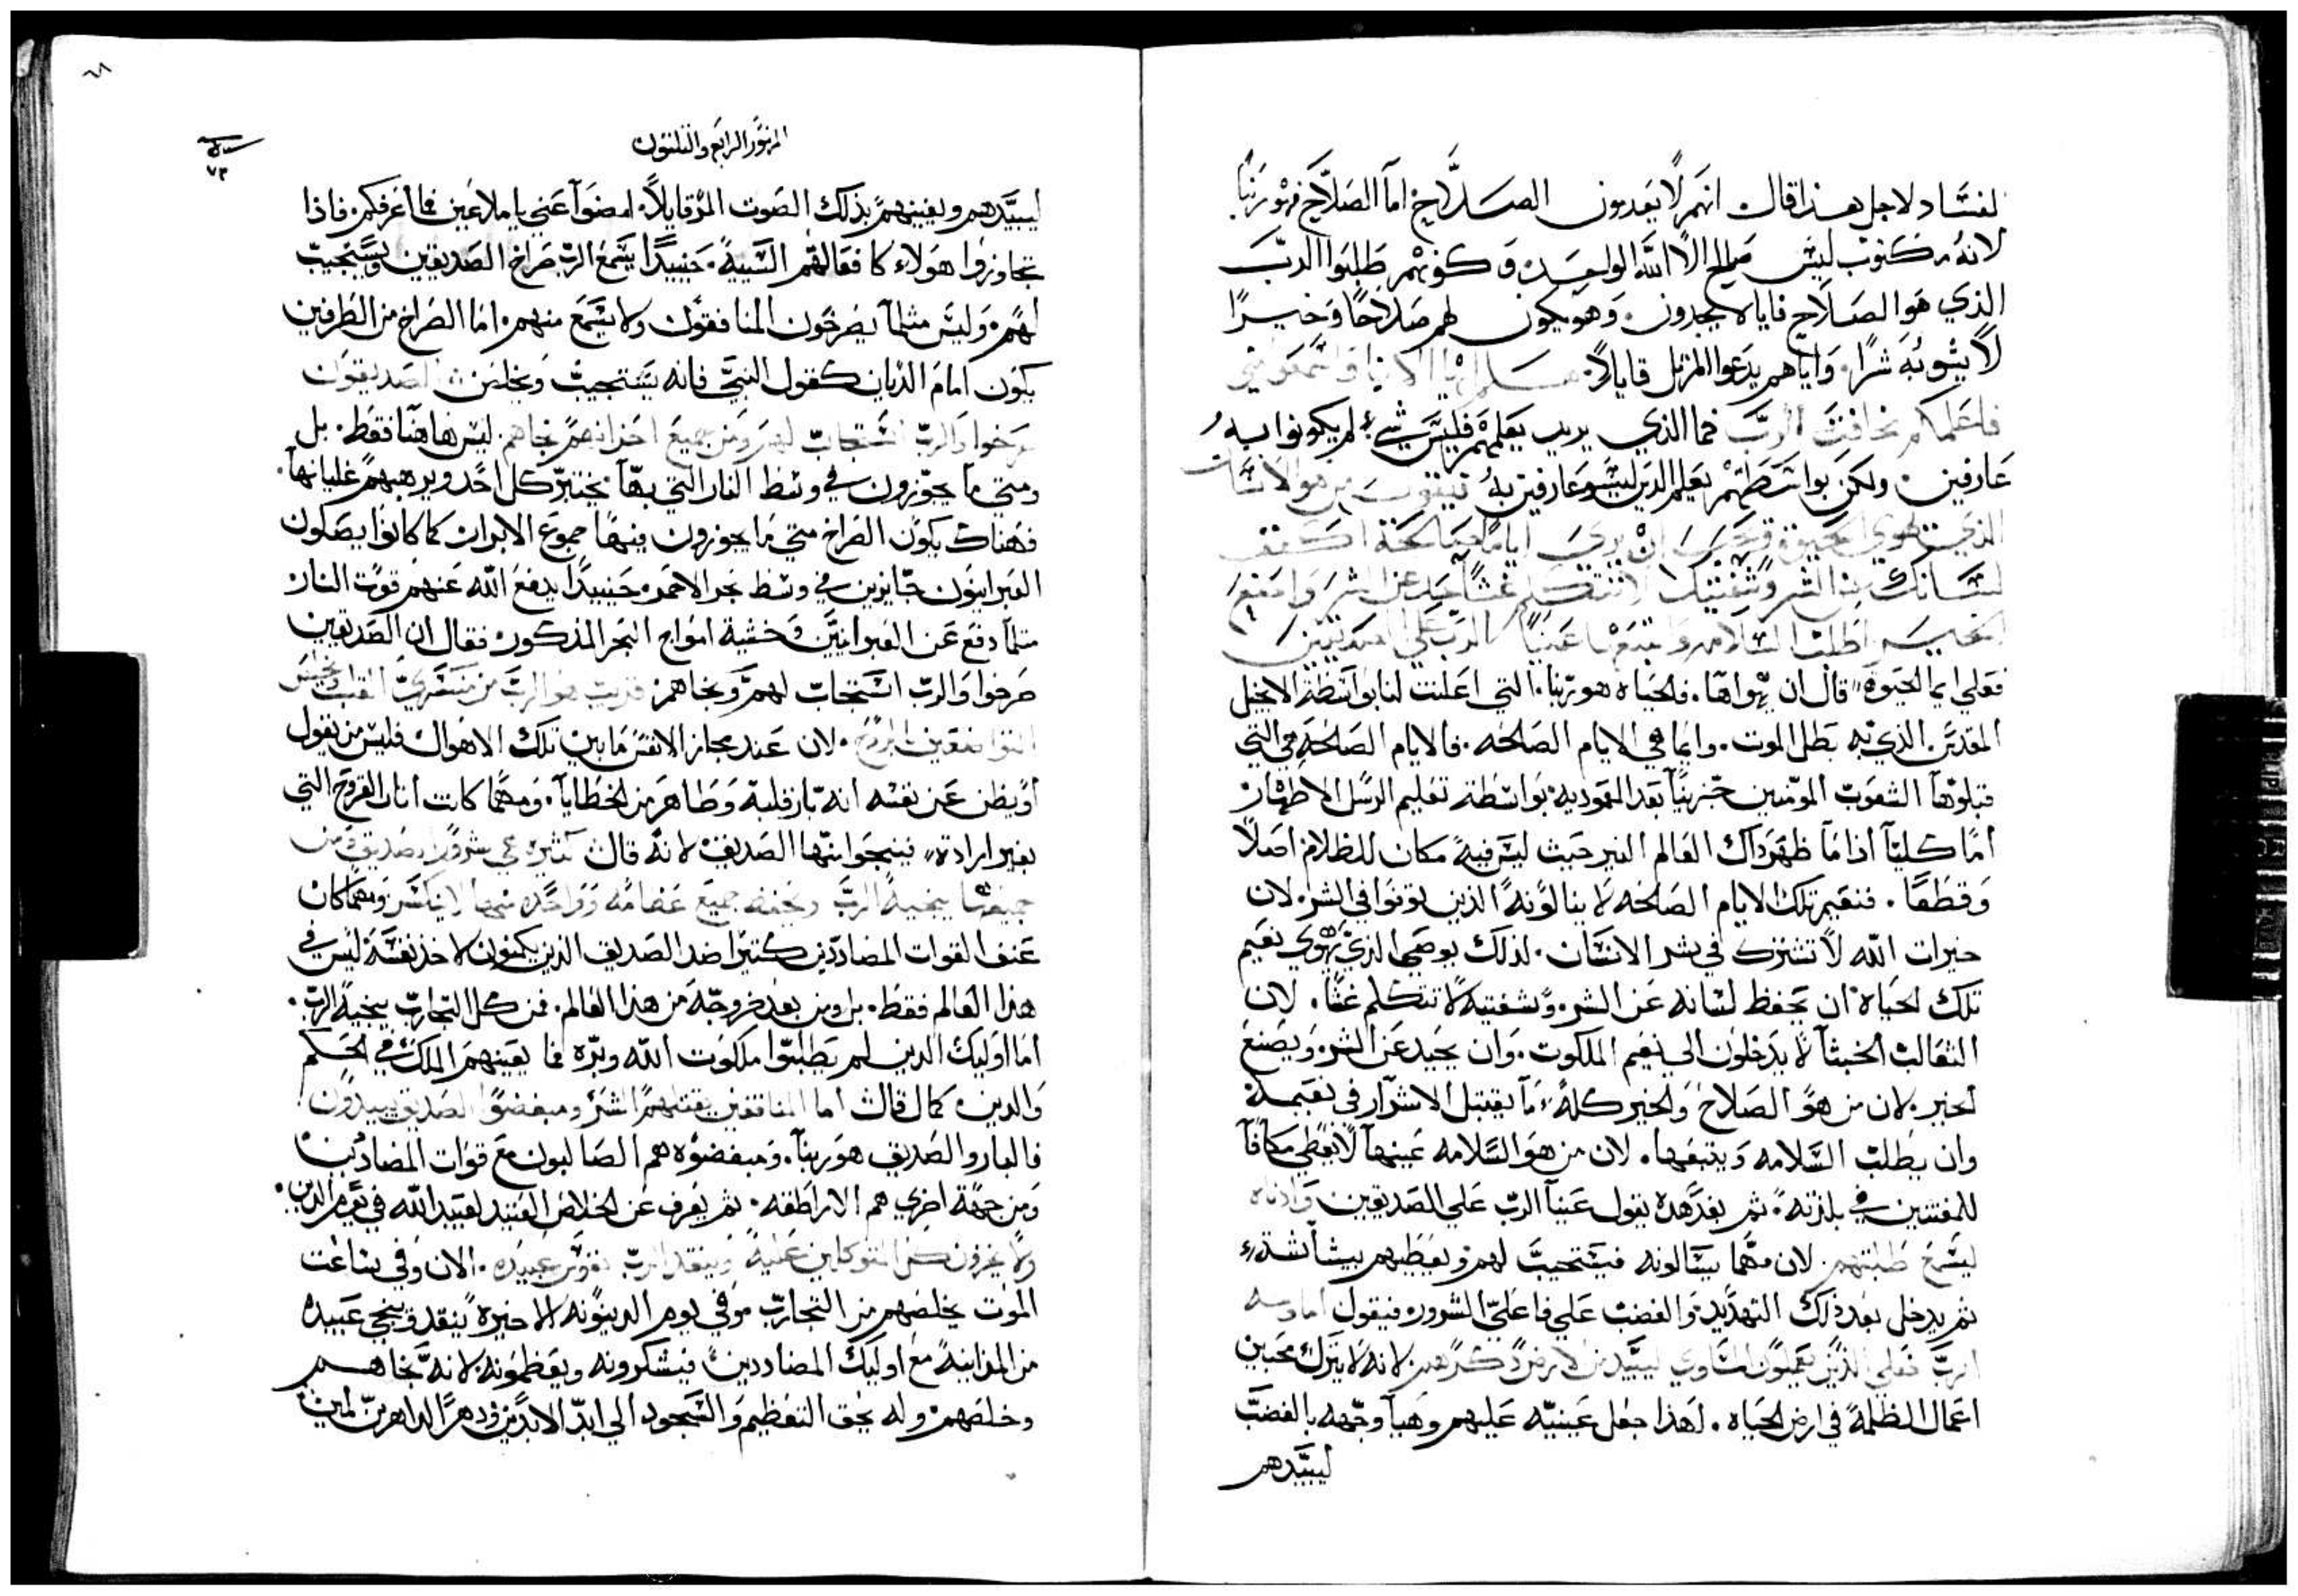 لفساد لاجل هذا قال انهم لا يعدمون الصلاح اما الصلاح فهو ربنا.
لانه مكتوب ليس صالح الا الله الواحد وكونهم طلبوا الرب
الذي هو الصلاح فاياه يجدون. وهو يكون لهم صلاحًا وخيرًا
لا يشوبه شرًا. واياهم يدعوا المرتل قايلاً. هلموا ايها الابنا واسمعوا مني
فاعلمكم مخافت الرب فما الذي يريد يعلمهم فليس شيء لم يكونوا به
عارفين. ولكن بواسطتهم يعلم الذين ليسو عارفين به فيقول من هو الانسان
الذي يهوي الحيوة ويحب ان يري اياما صالحة اكفف
لسانك من الشر وشفتيك لا تتكلم غشًا حيد عن الشر واصنع
الخير اطلب السلامه واتبعها عينا الرب علي الصديقين
فعلي ايما الحيوة قال ان يهواها. فالحياه هو ربنا. التي اعلنت لنا بواسطة الانجيل
المقدس. الذي به بطل الموت. وايما هي الايام الصالحه. فالايام الصالحة هي التي
قبلوها الشعوب المومنين بربنا بعد المعموديه بواسطة تعليم الرسل الاطهار
اما كليًا اذا ما ظهر ذاك العالم النير حيث ليس فيه مكان للظلام اصلاً
وقطعًا. فنعيم تلك الايام الصالحه لا ينالونه الذين توتوا في الشر. لان
خيرات الله لا تشترك في شر الانسان. لذلك يوصي الذي يهوي نعيم
تلك الحياه ان يحفظ لسانه عن الشر. وشفتيه لا تتكلم غشًا. لان
الثعالب الخبثا لا يدخلون الي نعيم الملكوت. وان يحيد عن الشر. ويصنع
الخير. لان من هو الصلاح والخير كله ما يقبل الاشرار في نعيمه
وان يطلب السلامه ويتبعها. لان من هو السلامه عينها لا يعطي مكافاة
للمفتنين في بلدته. ثم بعد هذه يقول عينا الرب علي الصديقين واذناه
ليسمع طلبتهم. لان مهما يسالونه فيستجيب لهم ويعطيهم ببشاشة
ثم يدخل بعد ذلك التهديد والغضب علي فاعلي الشرور. فيقول اما وجه
الرب فعلي الذين يعملون المساوي ليبيد من الارض ذكرهم. لانه لا يترك محبين
اعمال الظلمة في ارض الحياه. لهذا جعل عينيه عليهم وهيا وجهه بالغضب
ليبيدهم
المزمور الرابع والثلثون
٧٣
ليبيدهم ويفنيهم بذلك الصوت المر قايلاً. امضوا عني يا ملاعين فما اعرفكم. فاذا
تجاوزوا هولاء كافعالهم السيية. حينيدًا يسمع الرب صراخ الصديقين ويستجيب
لهم. وليس مثلما يصرخون المنافقون ولا يسمع منهم. اما الصراخ من الطرفين
يكون امام الديان كقول النبي فانه يستجيب ويخلص الصديقون
صرخوا والرب استجاب لهم ومن جميع احزانهم نجاهم. ليس هاهنا فقط. بل
ومتي ما يجوزون في وسط النار التي بها يختبر كل احد ويرهبهم غليانها.
فهناك يكون الصراخ متي ما يجوزون فيها جموع الابرار كما كانوا يصكون
العبرانيون جايزين في وسط بحر الاحمر. حينيدًا يدفع الله عنهم قوت النار
مثلما دفع عن العبرانيين خشية امواج البحر المذكور. فقال ان الصديقين
صرخوا والرب استجاب لهم ونجاهم. قريب هو الرب من منسحقي القلب ويخلص
المتواضعين بالروح. لان عند مجاز الانفس ما بين تلك الاهوال فليس من يقول
او يظن عن نفسه انه بار قلبه وطاهر من الخطايا. ومهما كانت اثار القروح التي
بغير ارادة. فينجوا منها الصديق. لانه قال كثيره هي شرور الصديق ومن
جميعها ينجيه الرب ويحفظ جميع عظامه وواحده منها لا ينكسر ومهما كان
عنف القوات المضاددين كثيرًا ضد الصديق الذين يكمنون لاخذ نفسه ليس في
هذا العالم فقط. بل ومن بعد خروجه من هذا العالم. فمن كل التجارب ينجيه الرب.
اما اوليك الدين لم يطلبوا ملكوت الله وبره فما يعينهم الملك في الحكم
والدين. كمال قال اما المنافقين يقتلهم الشر ومبغضوا الصديق يبيدون.
فالبار والصديق هو ربنا. ومبغضوه هم الصالبون مع قوات المضاددين
ومن جهة اخري هم الاراطقه. ثم يعرف عن الخلاص العتيد لعبيد الله في يوم الدين.
ولا يحزون كل المتوكلين عليه وينقد الرب نفوس عبيده. الان وفي ساعت
الموت يخلصهم من التجارب وفي يوم الدينونه الاخيرة ينقد وينجي عبيده
من المداينة مع اوليك المضاددين. فيشكرونه ويعظمونه. لانه نجاهم
وخلصهم وله يحق التعظيم والسجود الي ابد الابدين ودهر الداهرين امين